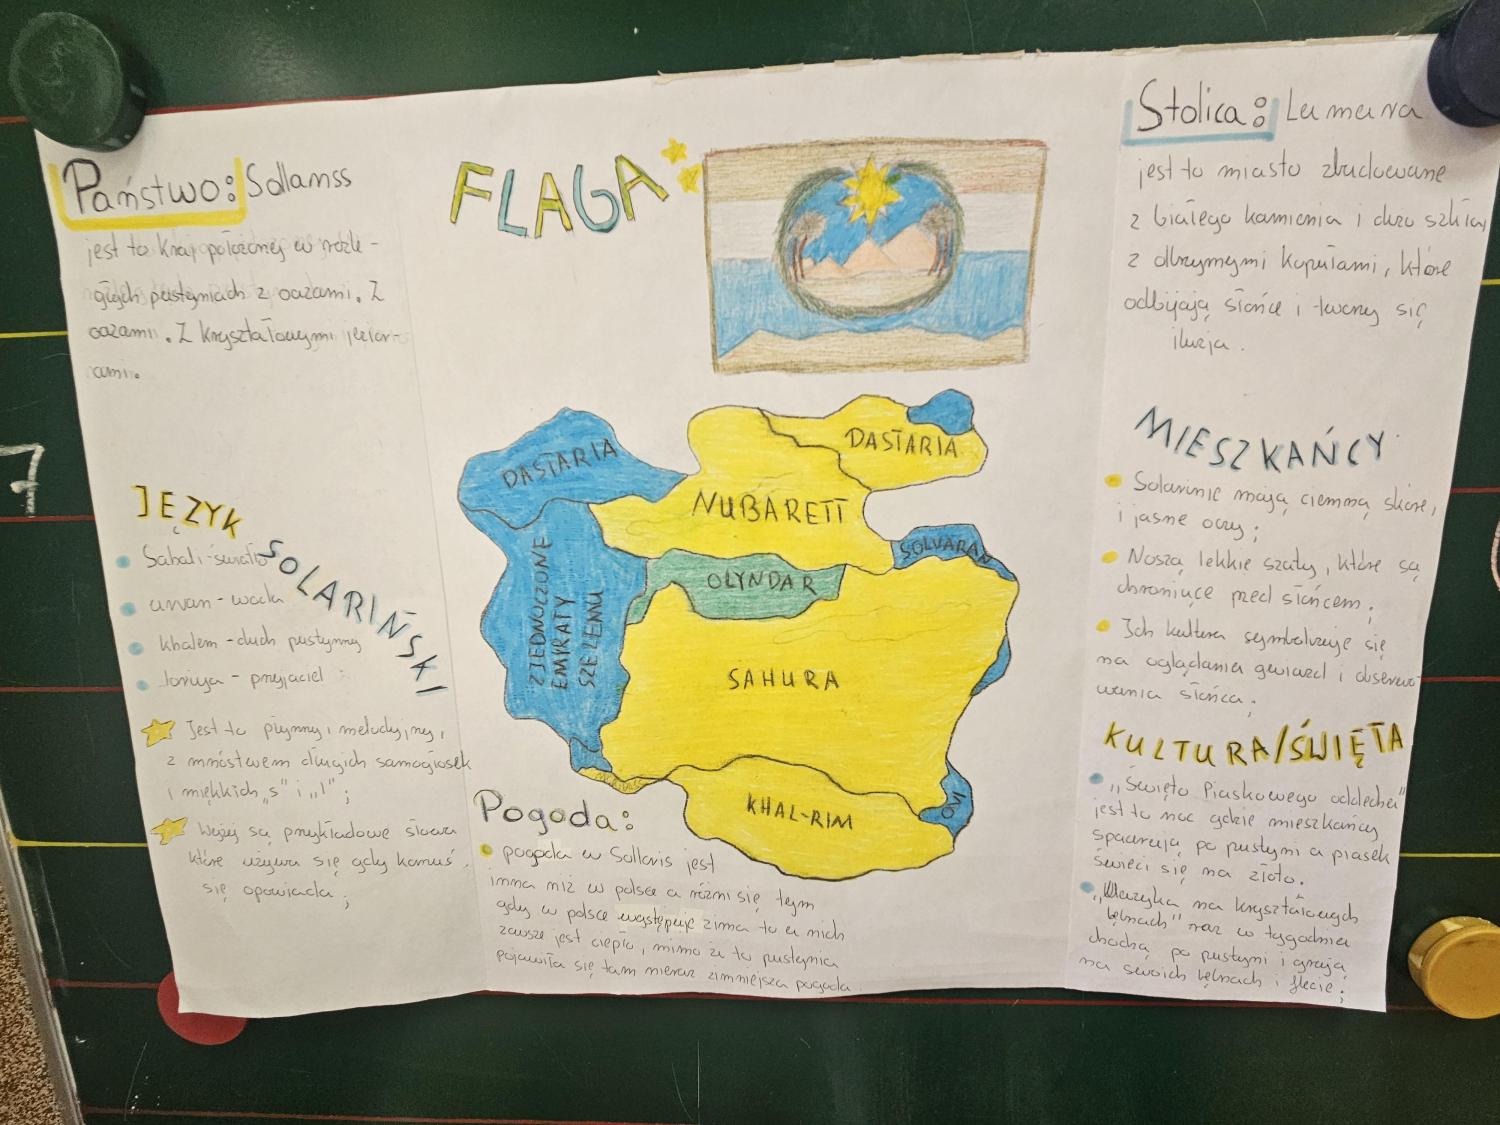 Państwo: Sollamss
jest to kraj położonej w rozle-
głych pustyniach z oazami. Z
oazami. Z kryształowymi jezior-
ami.
JĘZYK SOLARIŃSKI
Sabali - światło
awan - woda
khalem - duch pustynny
- przyjaciel
Jest to płynny i melodyjny,
z mnóstwem długich samogłosek
i miękkich „s" i „l";
Wyżej są przykładowe słowa
które używa się gdy komuś
się opowiada;
FLAGA
DASTARIA
DASTARIA
NUBARETT
SOLVARAN
OLYNDAR
ZJEDNOCZONE
EMIRATY
SZELEMU
SAHURA
KHAL-RIM
Pogoda:
pogoda w Sollaris jest
inna niż w polsce a różni się tym
gdy w polsce występuje zima to u nich
zawsze jest ciepło, mimo że to pustynia
pojawiła się tam nieraz zimniejsza pogoda.
Stolica: Lumura
jest to miasto zbudowane
z białego kamienia i dużo szkła,
z olbrzymymi kopułami, które
odbijają słońce i tworzy się
iluzja.
MIESZKAŃCY
Solarinie mają ciemną skórę,
i jasne oczy;
Noszą lekkie szaty, które są
chroniące przed słońcem;
Ich kultura symbolizuje się
na oglądania gwiazd i obserwo-
wania słońca;
KULTURA/ŚWIĘTA
„Święto Piaskowego oddechu"
jest to noc gdzie mieszkańcy
spacerują po pustyni a piasek
świeci się na złoto.
„Muzyka na kryształowych
bębnach" raz w tygodniu
chodzą po pustyni i grają
na swoich bębnach i flecie;
7